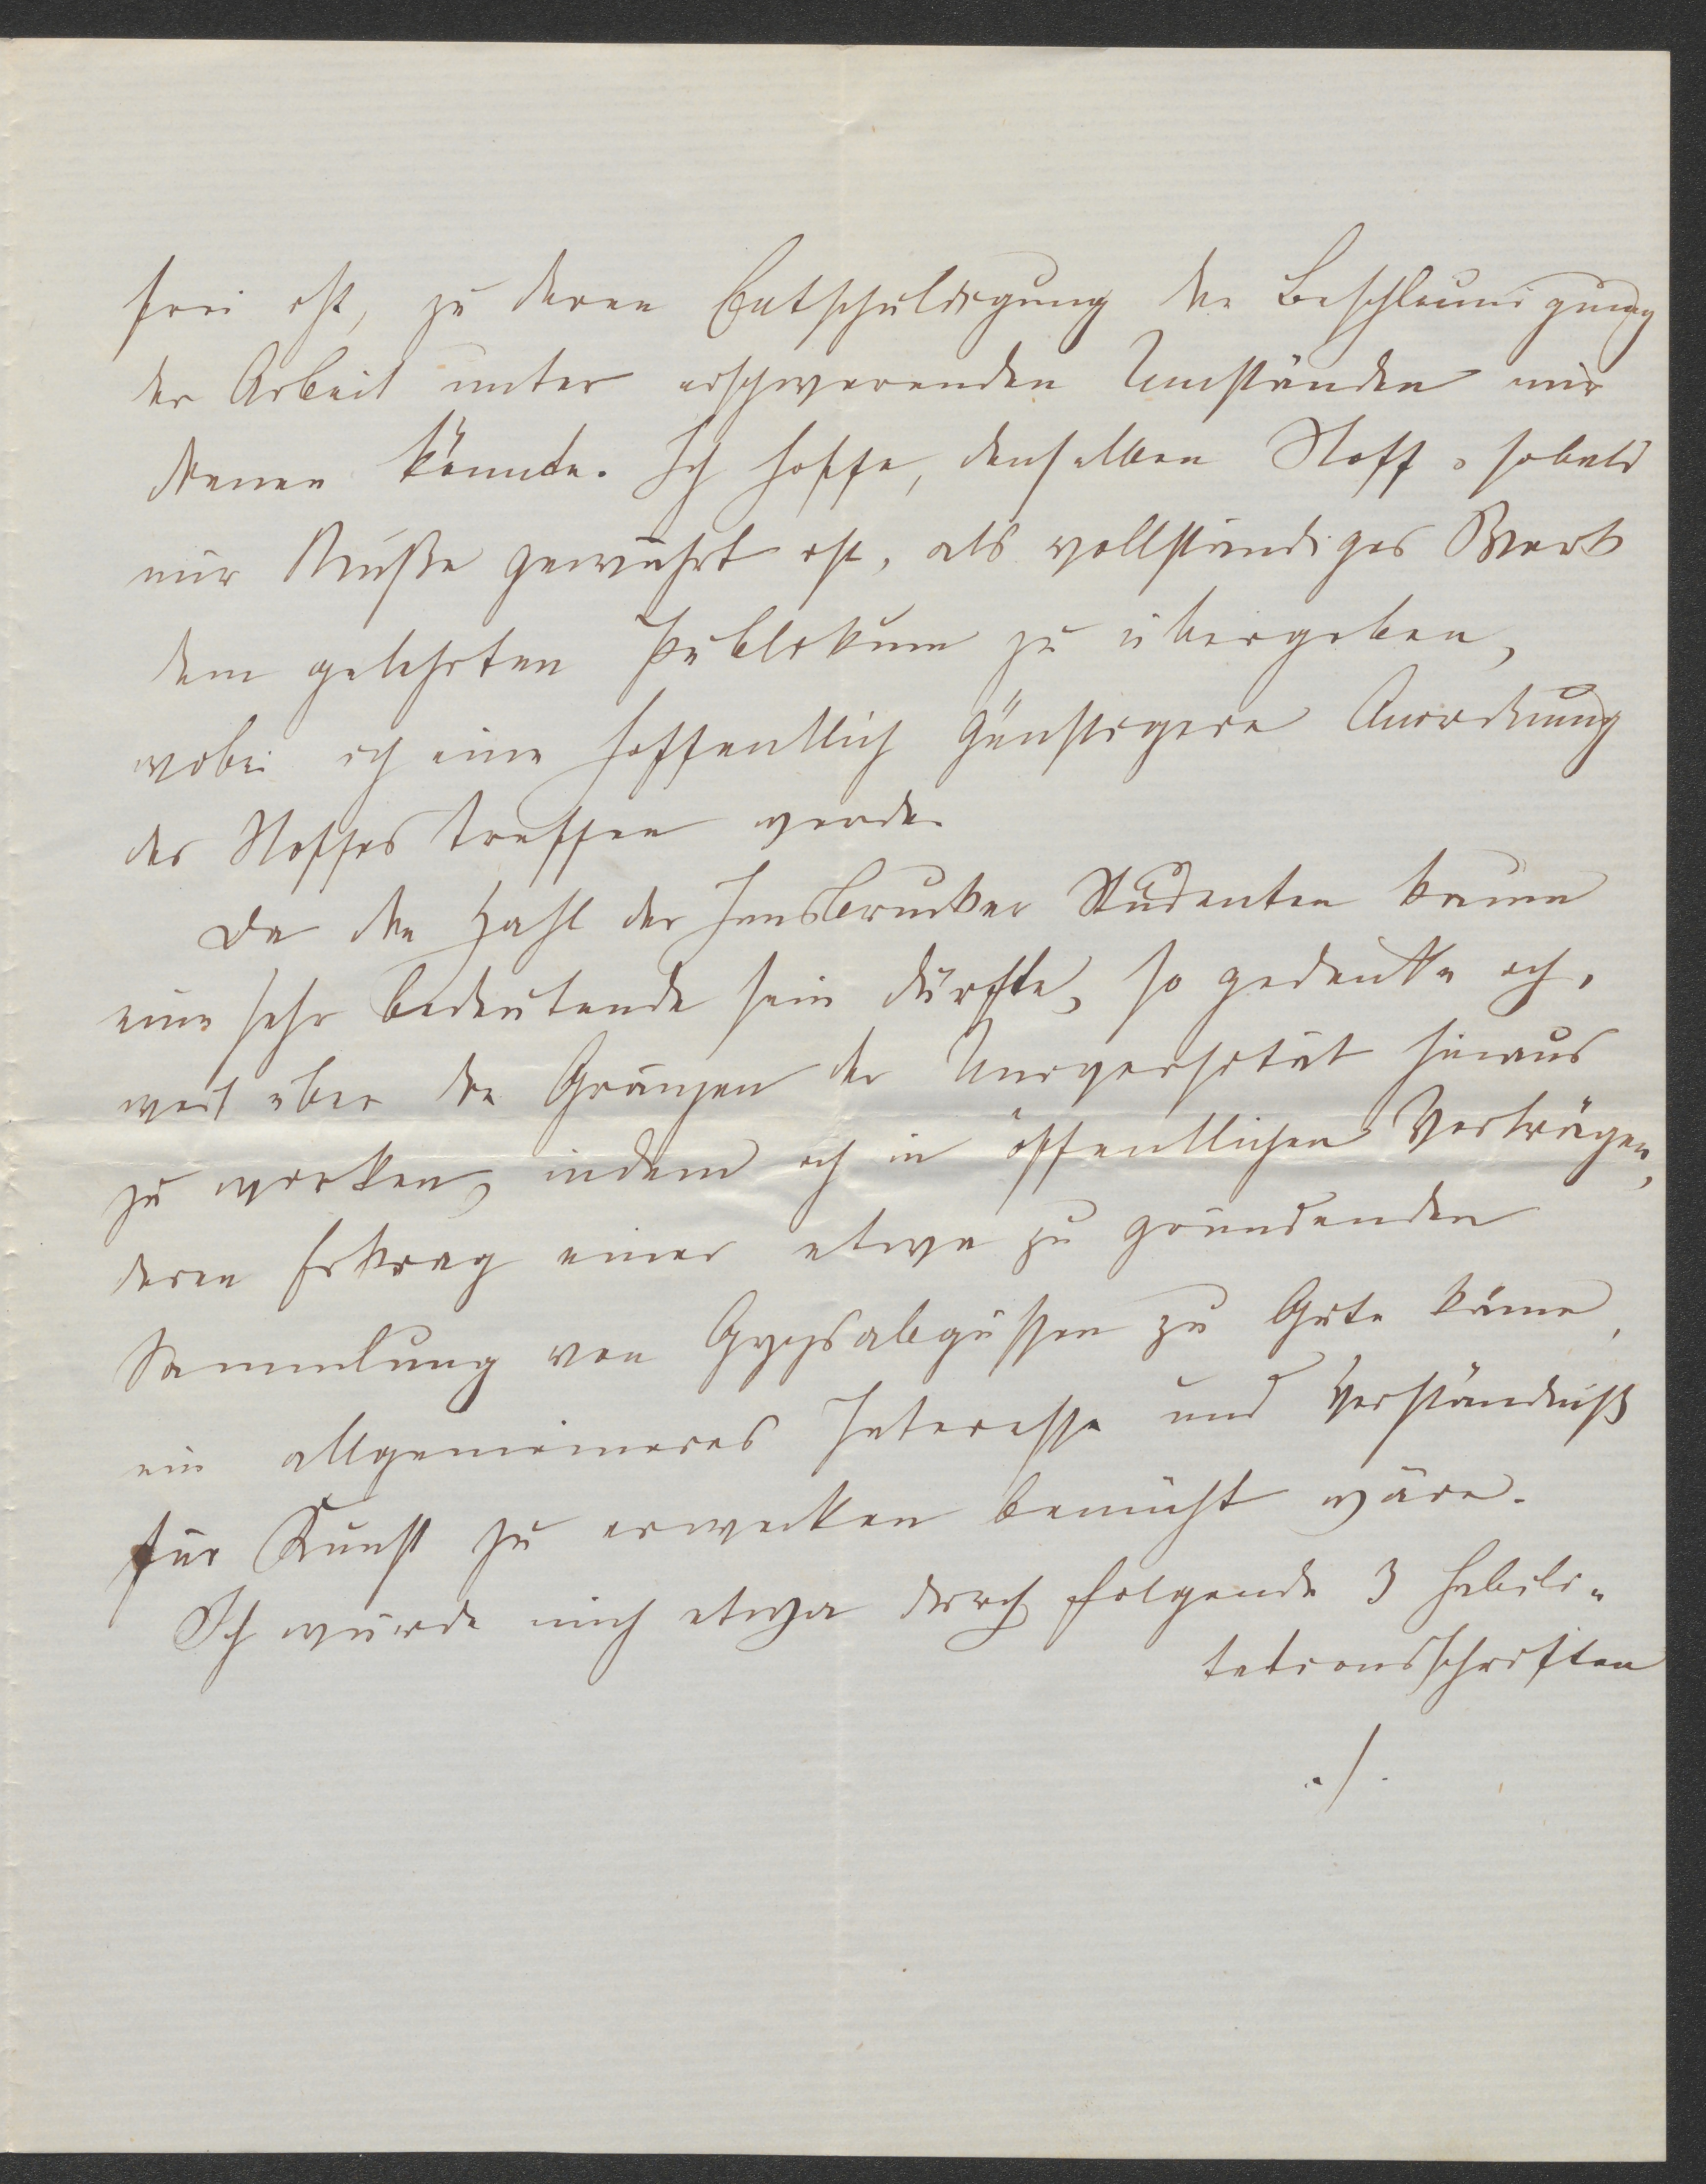 frei ist, zu deren Entschuldigung die Beschleunigung
der Arbeit unter erschwerenden Umständen mir
dienen könnte. Ich hoffe, denselben Stoff, sobald
mir Muße gewährt ist, als vollständiges Werk
dem gelehrten Publikum zu übergeben,
wobei ich eine hoffentlich günstigere Anordnung
des Stoffes treffen werde.
Da die Zahl der Innsbrucker Studenten kaum
eine sehr bedeutende sein dürfte, so gedenke ich,
weit über die Gränzen der Universität hinaus
zu wirken, indem ich in öffentlichen Vorträgen,
deren Ertrag einer etwa zu gründenden
Sammlung von Gypsabgüssen zu Gute käme,
ein allgemeineres Interesse und Verständniß
für Kunst zu erwecken bemüht wäre.
Ich würde mich etwa durch folgende 3 Habili-
tationsschriften
./.